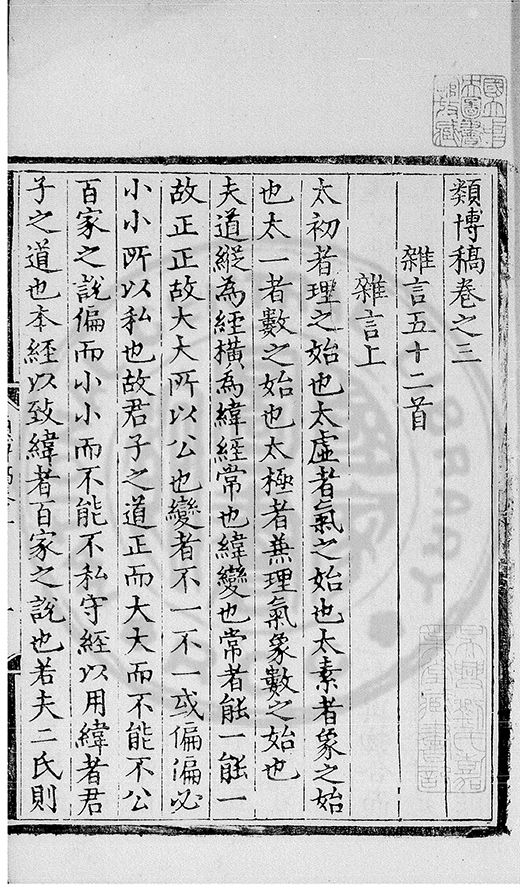 類博稿卷之三
雜言五十二首
雜言上
太初者理之始也太虛者氣之始也太素者象之始
也太一者數之始也太極者兼理氣象數之始也
夫道縱為經橫為緯經常也緯變也常者能一能一
故正正故大大所以公也變者不一不一或偏偏必
小小所以私也故君子之道正而大大而不能不公
百家之說偏而小小而不能不私守經以用緯者君
子之道也本經以致緯者百家之說也若夫二氏則